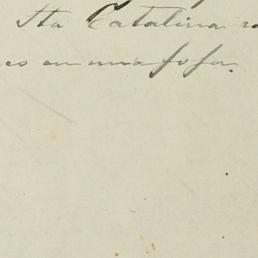 Sta Catalina
es en una fofa.